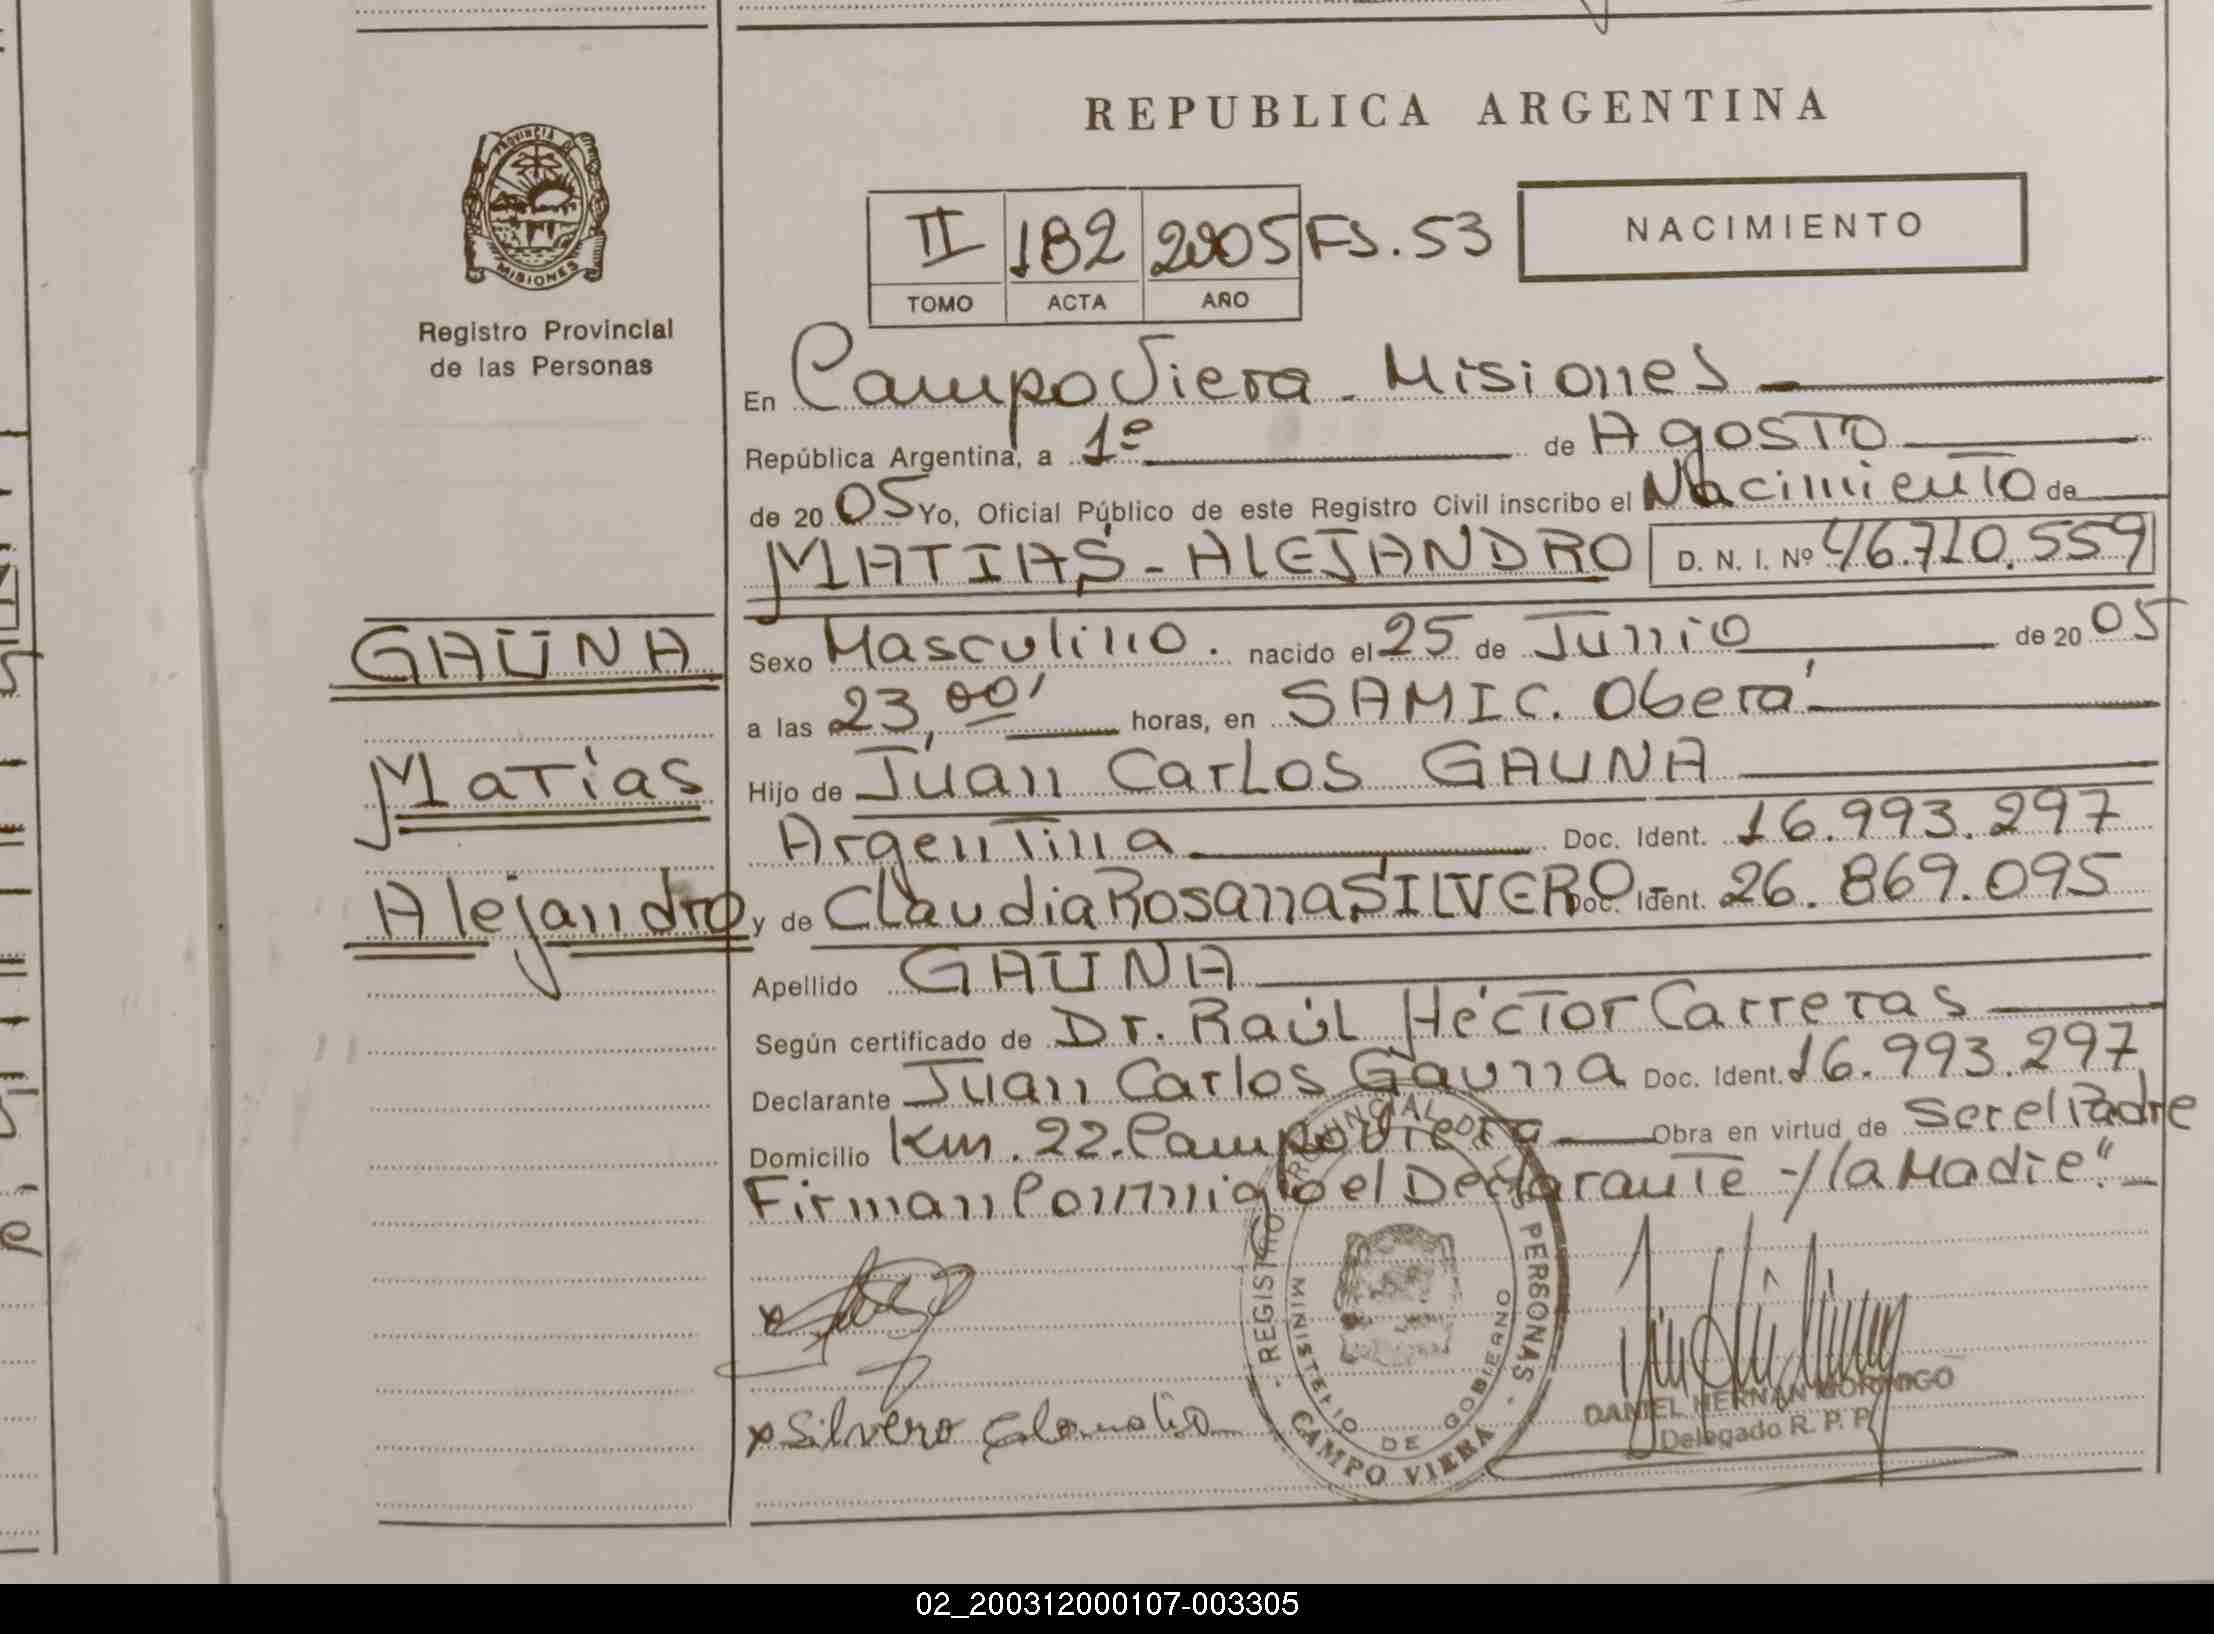 REPUBLICA ARGENTINA
PROVINCIA DE
MISIONES
Registro Provincial
de las Personas
II 182 2005 FS. 53
TOMO ACTA AÑO
NACIMIENTO
En Campo Viera - Misiones
República Argentina, a 1º de Agosto
de 2005 Yo, Oficial Público de este Registro Civil inscribo el Nacimiento de
MATIAS - ALEJANDRO D. N. I. Nº 46.710.559
GAUNA
Sexo Masculino. nacido el 25 de Junio de 2005
a las 23,00' horas, en SAMIC. Oberá
Matías
Hijo de Juan Carlos GAUNA
Argentina Doc. Ident. 16.993.297
Alejandro
y de Claudia Rosana SILVERO Doc. Ident. 26.869.095
Apellido GAUNA
Según certificado de Dr. Raúl Héctor Carreras
Declarante Juan Carlos Gauna Doc. Ident. 16.993.297
Domicilio Km. 22. Campo Viera Obra en virtud de Ser el Padre
Firman Conmigo el Declarante y la Madre".-
x
x Silvero Claudia
- REGISTRO PROVINCIAL DE LAS PERSONAS -
MINISTERIO DE GOBIERNO
CAMPO VIERA
DANIEL HERNAN MORINIGO
Delegado R. P. P.
02_200312000107-003305